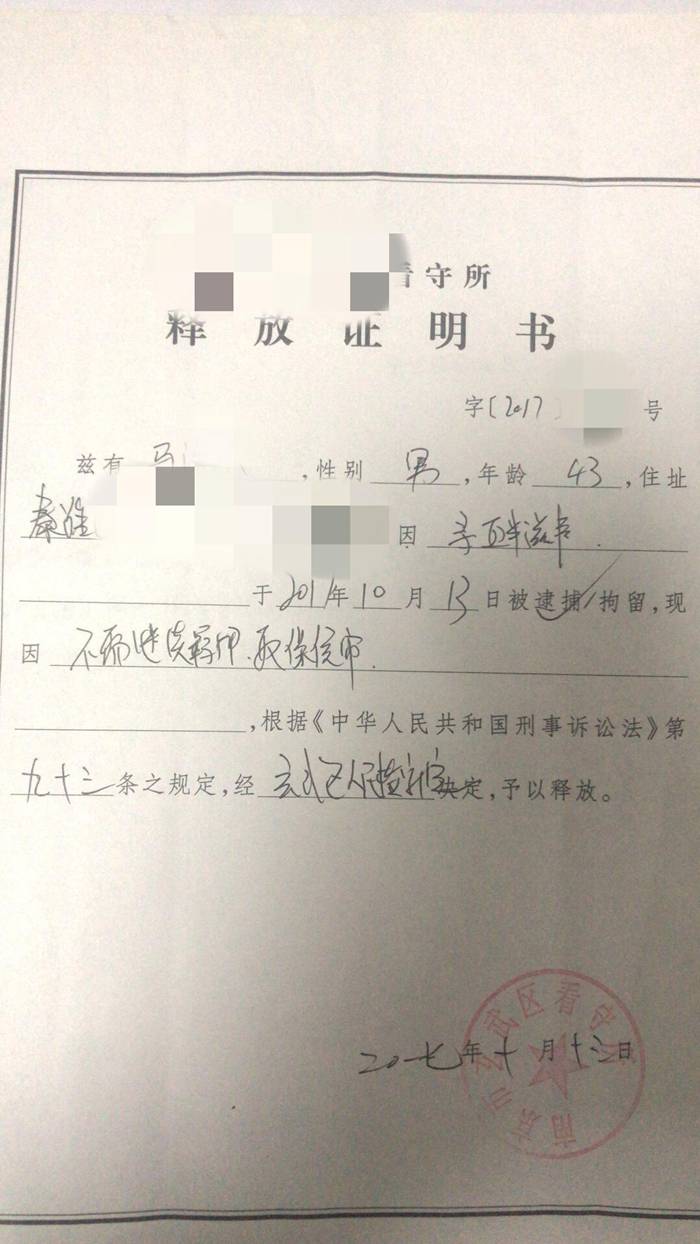 看守所
释放证明书
字〔2017 号
兹有 马 ,性别 男 ,年龄 43 ,住址
秦淮 因 寻衅滋事.
于 2017年 10 月 13 日被逮捕/拘留,现
因 不需继续羁押.取保候审.
,根据《中华人民共和国刑事诉讼法》第
九十三 条之规定,经 玄武区人民检察院 决定,予以释放。
二〇一七年十月十三日
南京市玄武区看守所